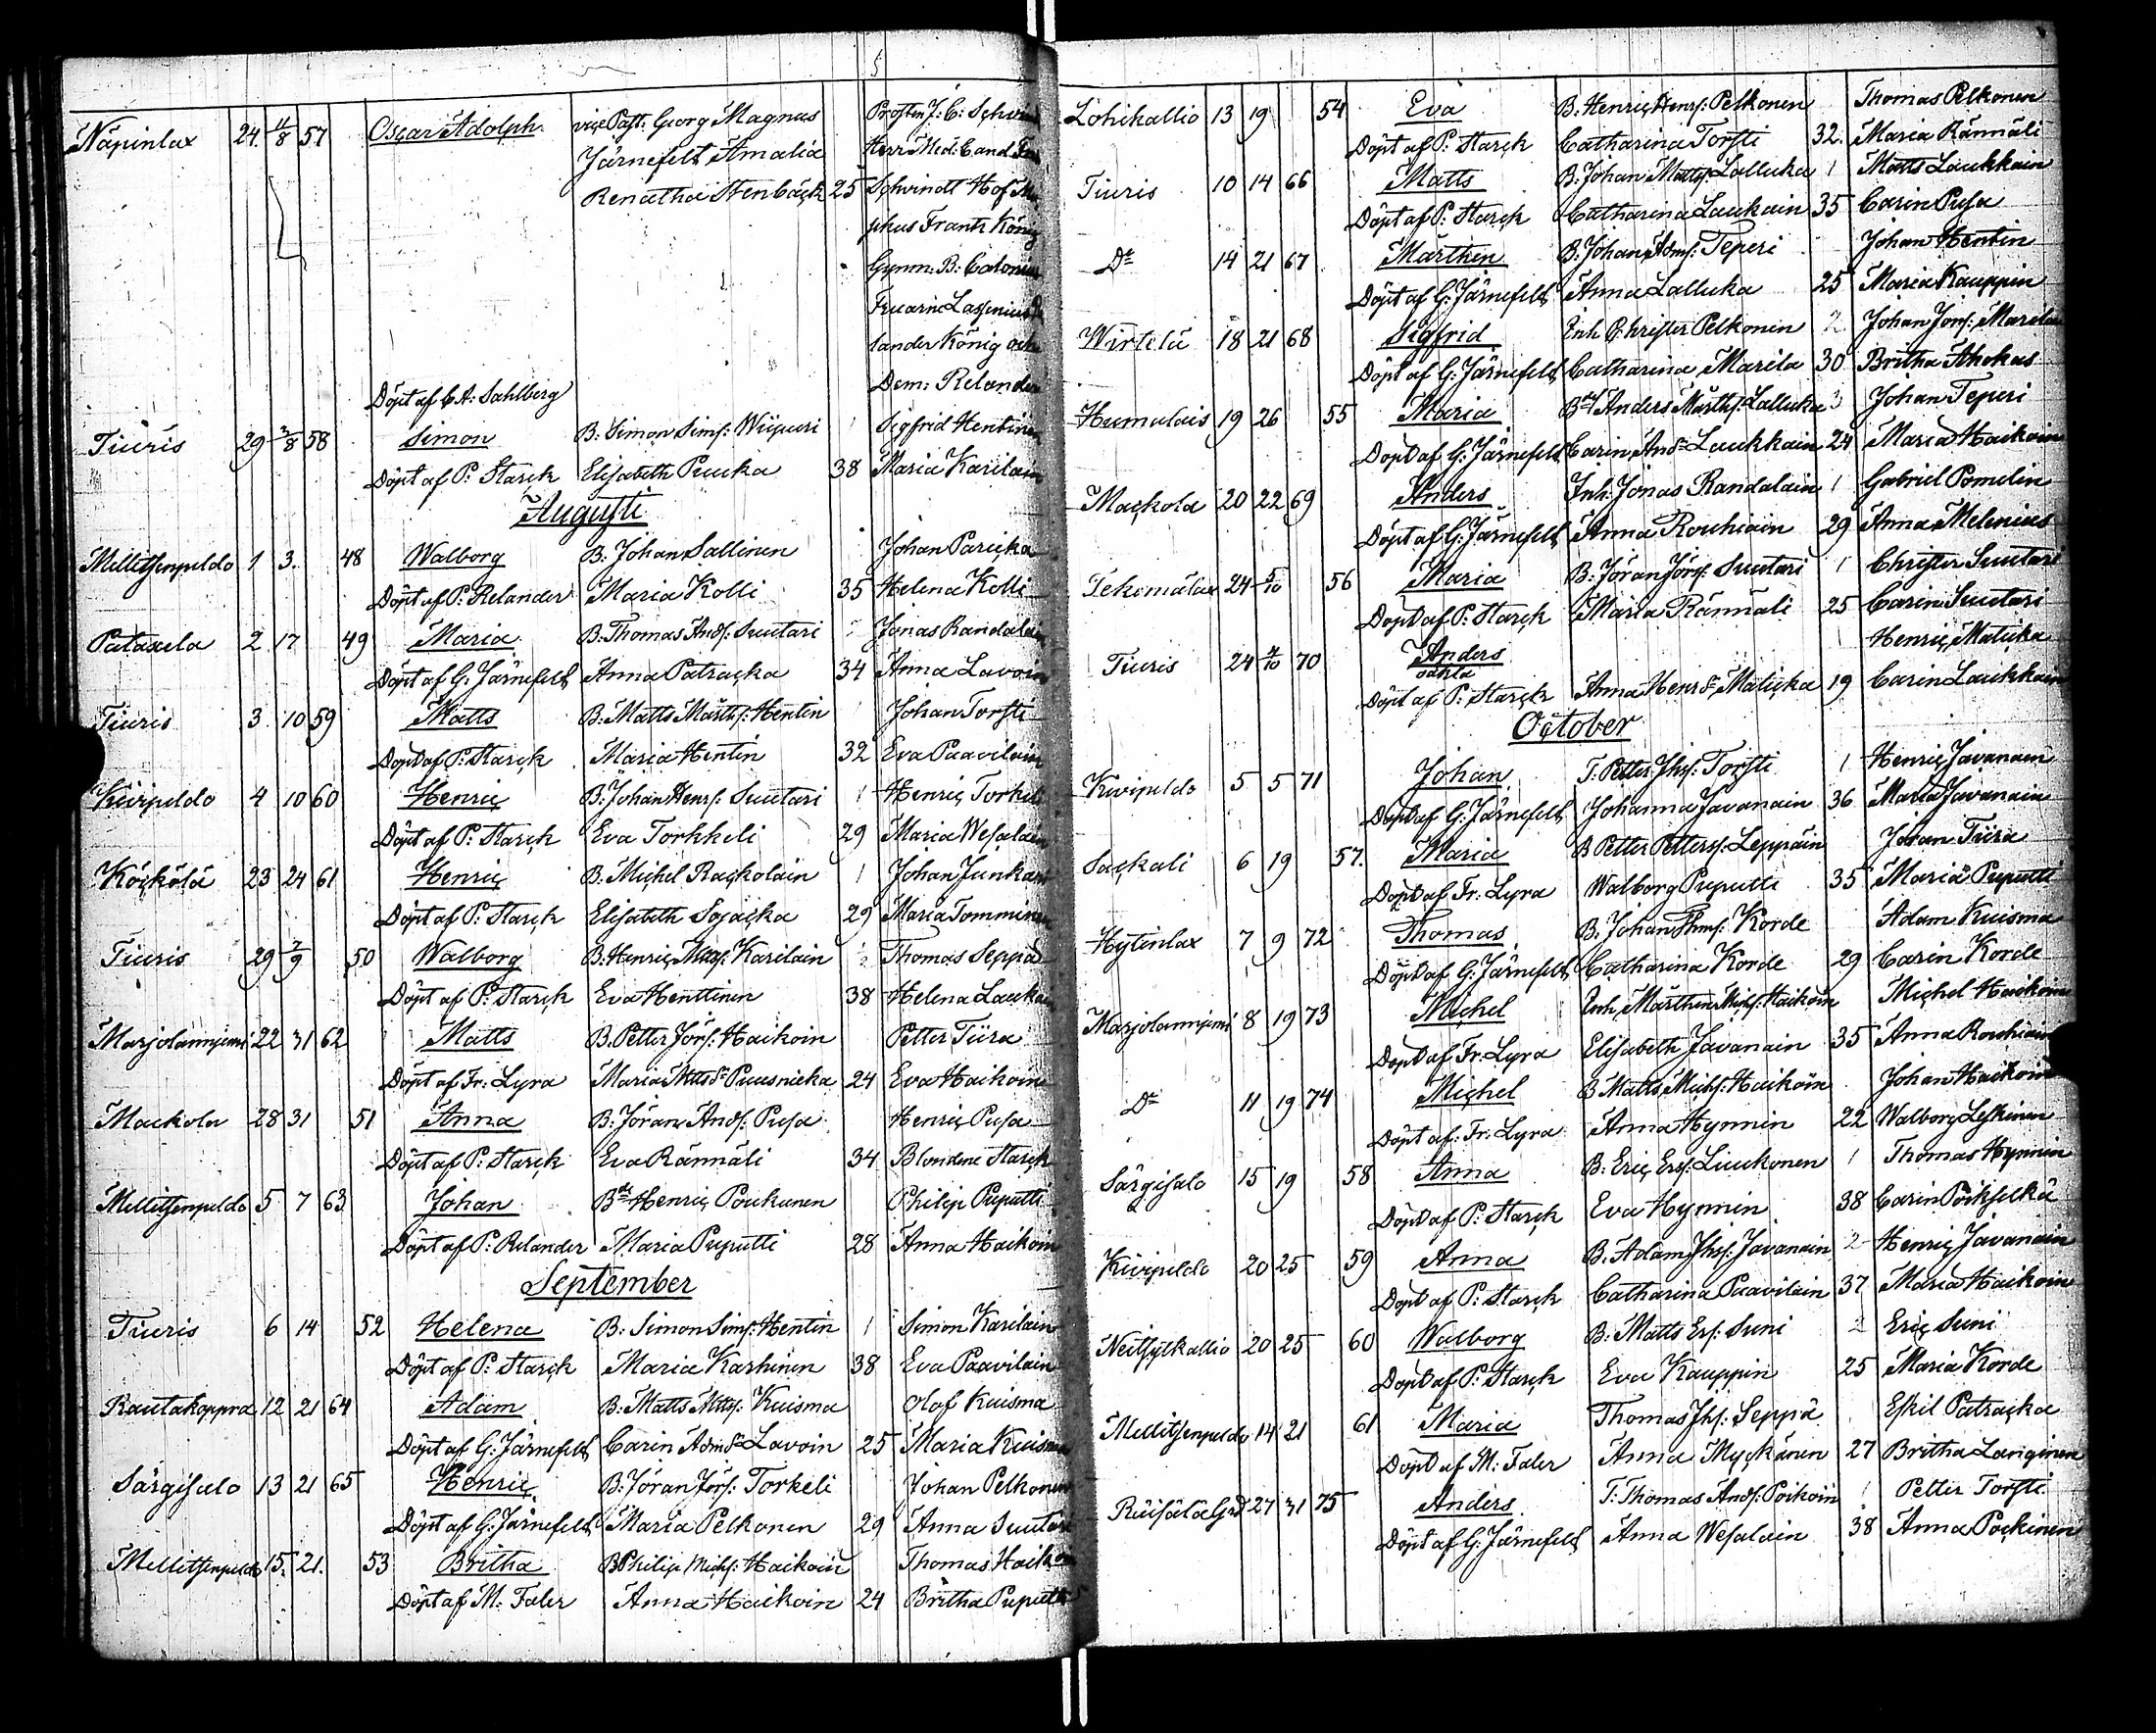 Näpinlax 24 11/8 57 Oscar Adolph vice Past: Georg Magnus Prosten J: C: Schvind
Järnefelt Amalia Herr Med: Cand
Renatha Stenbäck 25 Schvindt Hof
phus Frantz König
Gymn: B: Calonius
Fruarne Lagenius
lander König och
Döpt af C A: Sahlberg Dem: Relander
Tiuris 29 3/8 58 Simon B: Simon Sims: Wiipuri 1 Sigfrid Hentinen
Döpt af P: Starck Elisabeth Pucka 38 Maria Karilain
Augusti
Mellitsenpeldo 1 3. 48 Walborg B: Johan Sallinen Johan Paricka
Döpt af P: Relander Maria Kolli 35 Helena Kolli
Pataxela 2 17 49 Maria B: Thomas Ands: Suutari Jonas Randalain
Döpt af G: Järnefelt Anna Patracka 34 Anna Lavoin
Tiuris 3 10 59 Matts B: Matts Märths: Hentin Johan Torsti
Döpt af P: Starck Maria Hentin 32 Eva Paavilain
Kivipeldo 4 10 60 Henric B: Johan Henrs: Suutari 1 Henric Torkeli
Döpt af P: Starck Eva Torkkeli 29 Maria Wesalain
Köckölä 23 24 61 Henric B: Michel Rackolain 1 Johan Junkari
Döpt af P: Starck Elisabeth Sojacka 29 Maria Tomminen
Tiuris 29 2/9 50 Walborg B: Henric Matts: Karilain Thomas Seppä
Döpt af P: Starck Eva Henttinen 38 Helena Laukain
Marjolanniemi 22 31 62 Matts B. Petter Jörs: Haikoin Petter Tiira
Döpt af Fr: Lyra Maria Mttsdr Puusnieka 24 Eva Haikoin
Mackola 28 31 51 Anna B: Jöran Ands: Pusa Henric Pusa
Döpt af P: Starck Eva Rännäli 34 Blondine Starck
Mellitsenpeldo 5 7 63 Johan Bde Henric Poukunen Philip Puputti
Döpt af P: Relander Maria Puputti 28 Anna Haikoin
September
Tiuris 6 14 52 Helena B: Simon Sims: Hentin 1 Simon Karilain
Döpt af P: Starck Maria Karhinen 38 Eva Paavilain
Rautakoppra 12 21 64 Adam B: Matts Mtts: Kuisma Olof Kuisma
Döpt af G: Järnefelt Carin Admdr Lavoin 25 Maria Kuisma
Särgisalo 13 21 65 Henric B: Jöran Jörs: Torkeli Johan Pelkonen
Döpt af G: Järnefelt Maria Pelkonen 29 Anna Suutari
Mellitsenpeldo 15. 21. 53 Britha B Philip Michs: Haikoin Thomas Haikoin
Döpt af M: Faler Anna Haikoin 24 Britha Puputti
Lohikallio 13 19 54 Eva B. Henric Henrs: Pelkonen Thomas Pelkonen
Döpt af P: Starck Catharina Torsti 32. Maria Rännäli
Tiuris 10 14 66 Matts B: Johan Matts: Lallucka 1 Matts Laukkain
Döpt af P: Starck Catharina Laukain 35 Carin Pusa
Do 14 21 67 Märthen B: Johan Adms: Teperi Johan Hentin
Döpt af G: Järnefelt Anna Lallucka 25 Maria Kauppin
Wirtelä 18 21 68 Sigfrid Inh Christer Pelkonen 2 Johan Jons: Marila
Döpt af G: Järnefelt Catharina Marila 30 Britha Ahokas
Humalais 19 26 55 Maria Bde Anders Märths: Lallucka 3 Johan Teperi
Döpt af G: Järnefelt Carin Andsdr Laukkain 24 Maria Haikoin
Mackola 20 22 69 Anders Inh: Jonas Randalain 1 Gabriel Pomelin
Döpt af G: Järnefelt Anna Rouhiain 29 Anna Melenius
Tekomälax 24 5/10 56 Maria B: Jöran Jörs: Suutari 1 Christer Suutari
Döpt af P: Starck Maria Rännäli 25 Carin Suutari
Tiuris 24 4/10 70 Anders Henric Maticka
oäkta
Döpt af P: Starck Anna Henrsdr Maticka 19 Carin Laukkain
October
Kivipeldo 5 5 71 Johan T: Petter Jhs: Torsti 1 Henric Javanain
Döpt af G: Järnefelt Johanna Javanain 36 Maria Javanain
Sackali 6 19 57. Maria B Petter Petters: Leppäin Johan Tiira
Döpt af Fr: Lyra Walborg Puputti 35 Maria Puputti
Hytinlax 7 9 72 Thomas B: Johan Thms: Korde Adam Kuisma
Döpt af G: Järnefelt Catharina Korde 29 Carin Korde
Marjolanniemi 8 19 73 Michel Inh. Märthen Michs: Haikoin Michel Haikoin
Döpt af Fr: Lyra Elisabeth Javanain 35 Anna Rouhiain
Do 11 19 74 Michel B Matts Michs: Haikoin Johan Haikoin
Döpt af: Fr: Lyra Anna Hynnin 22 Walborg Leskinen
Särgisalo 15 19 58 Anna B: Eric Ers: Liuckonen 1 Thomas Hynnin
Döpt af P: Starck Eva Hynnin 38 Carin Poikselkä
Kivipeldo 20 25 59 Anna B: Adam Jhs: Javanain 2 Henric Javanain
Döpt af P: Starck Catharina Paavilain 37 Maria Haikoin
Neitsytkallio 20 25 60 Walborg B: Matts Ers: Suni 2 Eric Suni
Döpt af P: Starck Eva Kauppin 25 Maria Korde
Mellitsenpeldo 14 21 61 Maria Thomas Jhs: Seppä Eskil Patracka
Döpt af M: Faler Anna Myckänen 27 Britha Langinen
Räisälä Grd 27 31 75 Anders T: Thomas Ands: Poikoin 1 Petter Torsti
Döpt af G: Järnefelt Anna Wesalain 38 Anna Pockinen